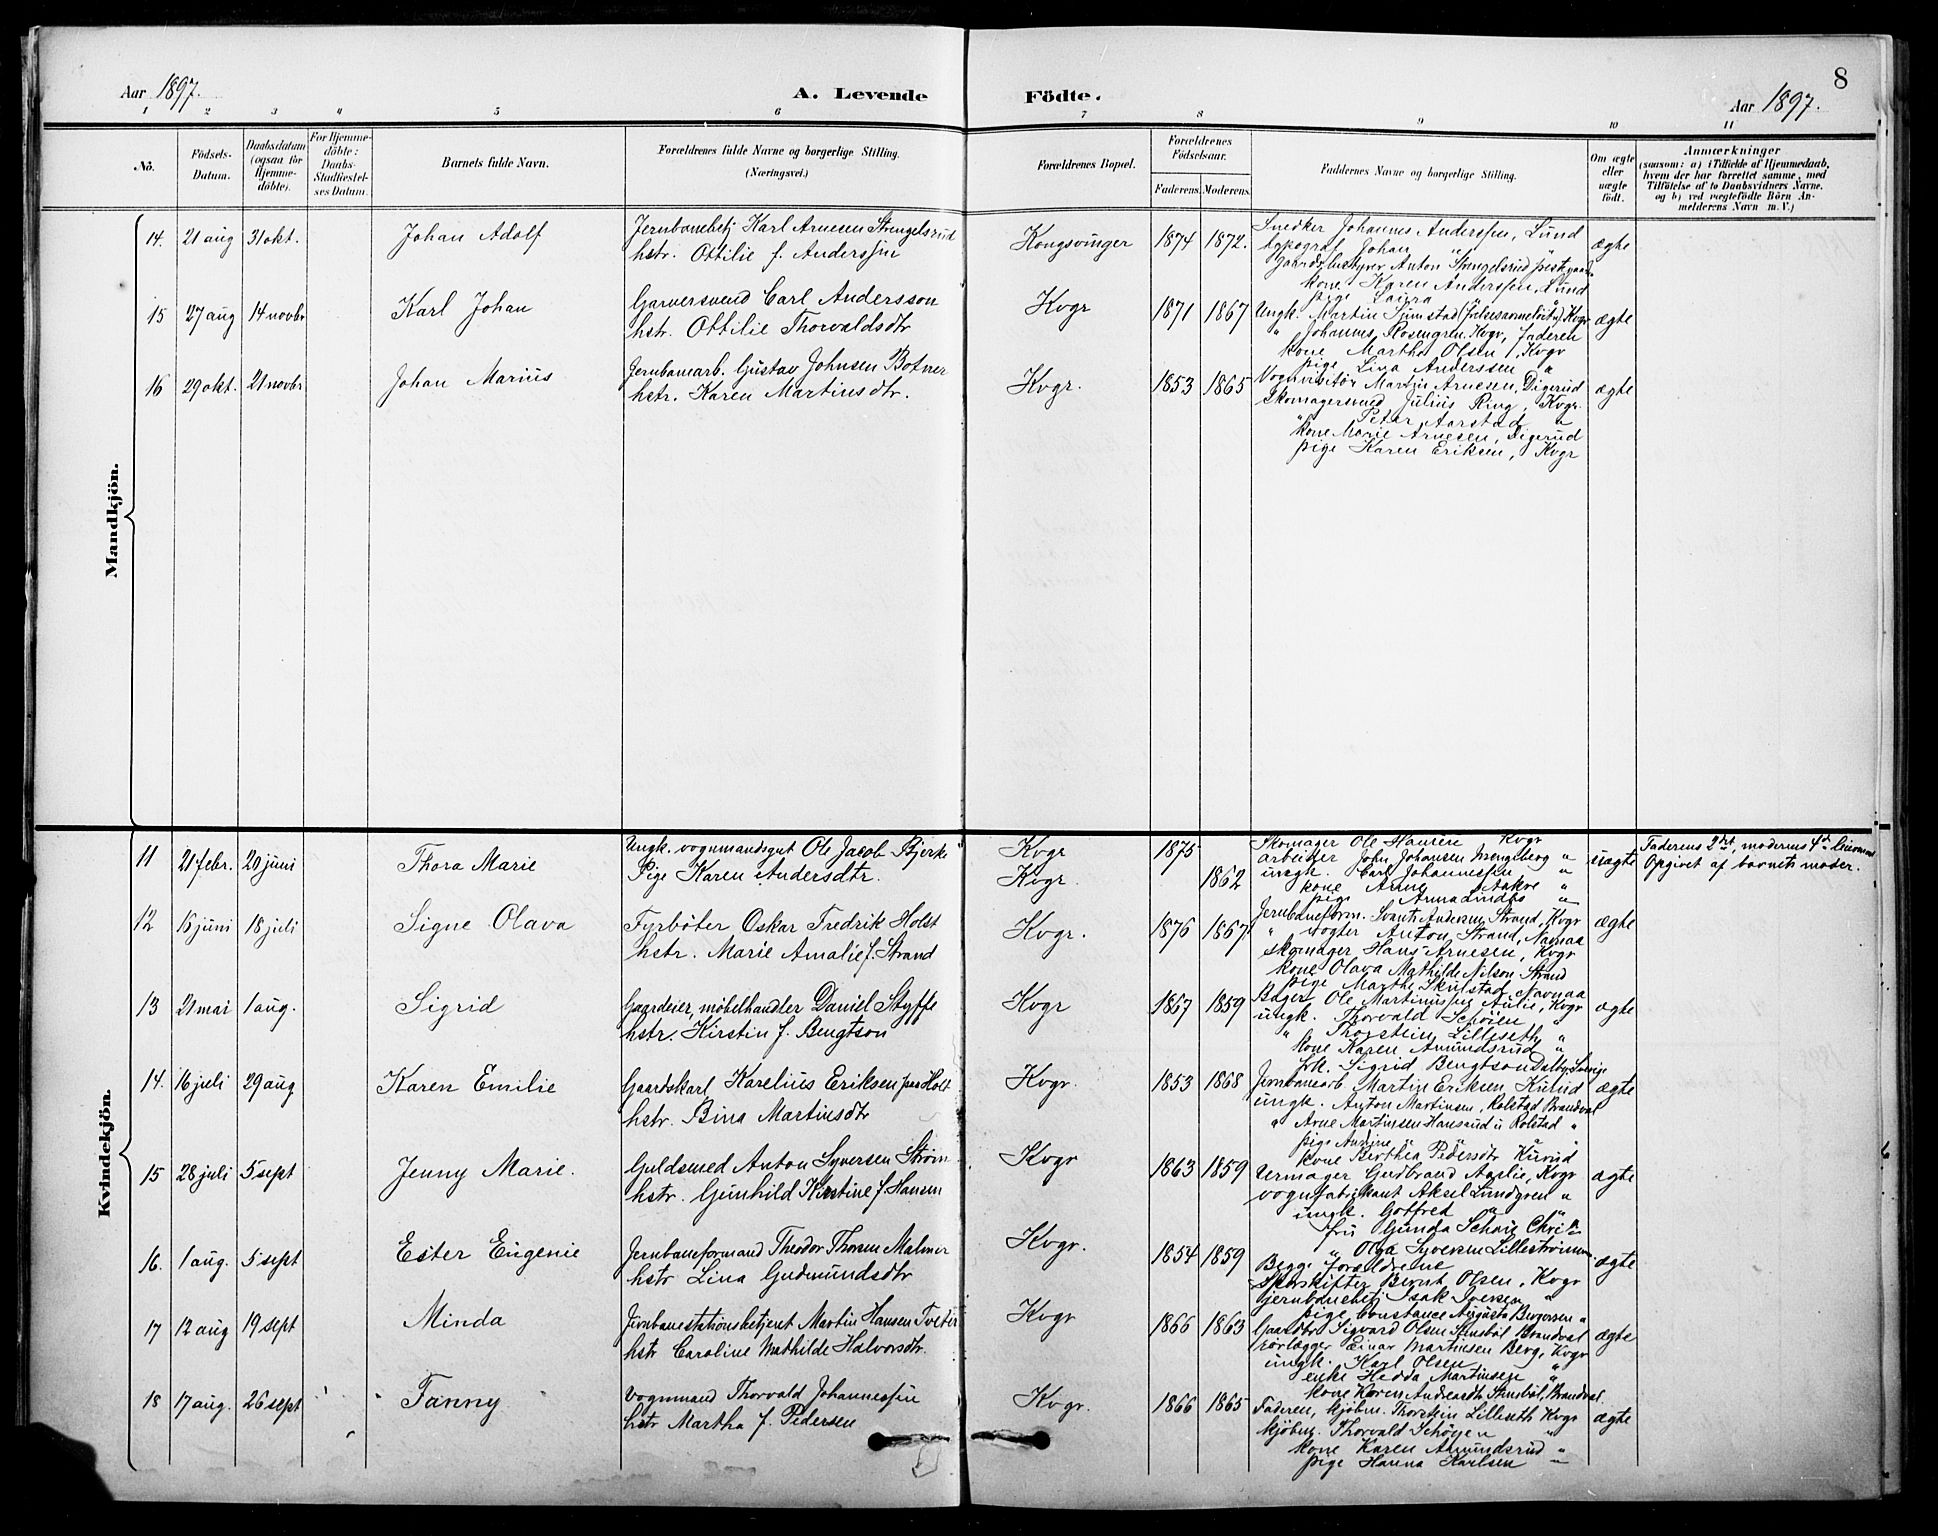 Aar 1897.
A. Levende
Födte.
8
Aar 1897.
1 2 3 4 5 6 7 8 9 10 11
No.
Födsels-Datum.
Daabsdatum (ogsaa for Hjemme-döbte).
For Hjemme-döbte: Daabs-Stadfæstel-ses Datum.
Barnets fulde Navn.
Forældrenes fulde Navne og borgerlige Stilling.
(Næringsvei.)
Forældrenes Bopæl.
Forældrenes Födselsaar.
Faderens. Moderens.
Faddernes Navne og borgerlige Stilling.
Om ægte eller uægte födt.
Anmærkninger
(saasom: a) i Tilfælde af Hjemmedaab,
hvem der har forrettet samme, med
Tilföielse af to Daabsvidners Navne.
og b) ved uægtefödte Börn An-
melderens Navn m. V.)
Mandkjön.
14. 21 aug 31 okt. Johan Adolf
Jernbanebetj Karl Arnesen Strengelsrud
hstr. Ottilie f. Anderssen
Kongsvinger 1874 1872.
Snedker Johannes Anderssen, Lund
typograf Johan " "
gaardsbestyrer Anton Strengelsrud
kone Karen Anderssen, Lund
pige Laura "
ægte
15 27 aug 14 novbr Karl Johan
Garversvend Carl Andersson
hstr. Ottilie Thorvaldsdtr
Kvgr 1871 1867
Ungk. Martin Kvgr
" Johannes Rosengren Kvgr, faderen
kone Martha Olsen, Kvgr
pige Lina Anderssen "
ægte
16 29 okt. 21 novbr Johan Marius
Jernbanearb. Gustav Johnsen Botner
hstr. Karen Martinsdtr.
Kvgr. 1853 1865
Vognvisitör Martin Arnesen, Digerud
Skomagersvend Julius Ring, Kvgr.
" Peter Aarstad "
kone Marie Arnesen, Digerud
pige Karen Eriksen, Kvgr
ægte
Kvindekjön.
11 21 febr. 20 juni Thora Marie
Ungk. vognmandsgut Ole Jacob Bjerke
Pige Karen Andersdtr.
Kvgr 1875
Kvgr. 1862
Skomager Ole Hansen Kvgr
arbeider John Johansen "
ungk. Carl Johannessen "
kone Anne Aakre "
pige Anna "
uægte
Faderens 2det, moderens 4de
Opgivet af barnets moder.
12 16 juni 18 juli Signe Olava
Fyrböter Oskar Fredrik Holst
hstr. Marie Amalie f. Strand
Kvgr. 1876 1867
Jernbaneform. Andersen Strand, Kvgr
" vogter Anton Strand,
skomager Hans Arnesen, Kvgr
kone Olava Mathilde Nilson Strand
pige Marthe Skulstad
ægte
13 21 mai 1 aug. Sigrid
Gaardeier, möbelhandler Daniel Styffe
hstr. Kirstin f. Bengtson
Kvgr 1867 1859
Bager Ole Martinussen Aulie, Kvgr
ungk. Thorvald Schöien "
" Thorstein Lilleseth "
kone Karen Amundsrud "
frk. Sigrid Bengtson Dalby, Sverige
ægte
14. 16 juli 29 aug Karen Emilie
Gaardskarl Karelius Eriksen paa Holt
hstr. Bina Martinsdtr
Kvgr. 1853 1868
Jernbanearb. Martin Eriksen, Kurud
ungk. Anton Martinsen, Rolstad Brandval
" Arne Martinsen Hansrud u Rolstad "
pige Andine "
kone Berthea Pedersdtr Kurud
ægte
15 28 juli 5 sept Jenny Marie.
Guldsmed Anton Syversen Ström
hstr. Gunhild Kirstine f. Hansen
Kvgr 1863 1859
Urmager Gudbrand Kvgr
vognfabrikant Aksel Lundgren "
ungk. Gotfred "
fru Gunda
" Olga Syversen Lilleströmmen
ægte
16. 1 aug. 5 sept Ester Eugenie
Jernbaneformand Theodor Thorsen Malmer
hstr Lina Gudmundsdtr
Kvgr. 1854 1859
Begge forældrene
Sporskifter Bernt Olsen, Kvgr
jernbanebetj Isak Iversen "
pige Constance Augusta "
ægte
17 12 aug 19 sept Minda
Jernbanestationsbetjent Martin Hansen Tveter
hstr Caroline Mathilde Halvorsdtr.
Kvgr 1866 1863
Gaardbr Sigvard Olsen Brandval
rörlægger Einar Martinsen Berg, Kvgr
ungk. Karl Olsen "
enke Hedda Martinsen "
kone Karen Andreasdtr Brandval
ægte
18 17 aug. 26 sept Fanny
Vognmand Thorvald Johannessen
hstr Martha f. Pedersen
Kvgr. 1866 1865
Faderen, kjöbm. Thorstein Lilleseth Kvgr
kjöbm. Thorvald Schöyen "
kone Karen Amundsrud "
pige Hanna Karlsen "
ægte